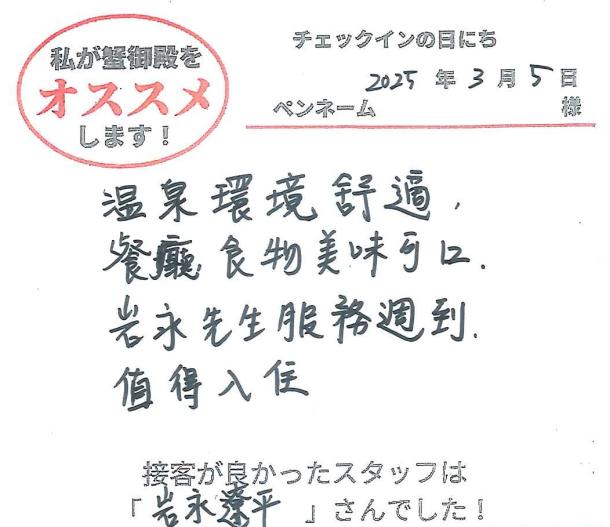 私が蟹御殿を
オススメ
します！
チェックインの日にち
2025 年 3 月 5 日
ペンネーム 様
温泉環境舒適，
餐廳食物美味可口.
岩永先生服務週到.
值得入住
接客が良かったスタッフは
「岩永遼平」さんでした！